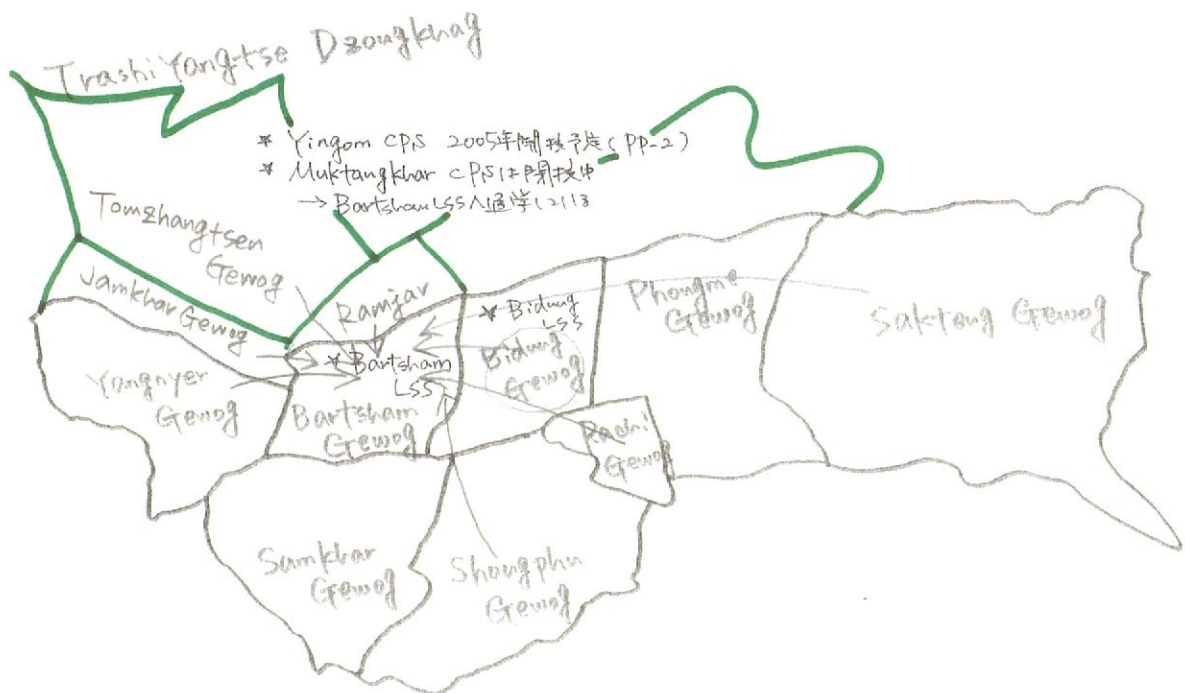 TrashiYangtse Dzongkhag
* Yingom CPS 2005年開校予定(PP-2)
* Muktangkhar CPSは開校中
→ BartshamLSSへ通学している
Tomzhangtsen
Gewog
Jamkhar Gewog
Ramjar
* Bidung
LSS
Bidung
Gewog
Phongme
Gewog
Sakteng Gewog
Yangnyer
Gewog
* Bartsham
LSS
Bartsham
Gewog
Radhi
Gewog
Samkhar
Gewog
Shongphu
Gewog